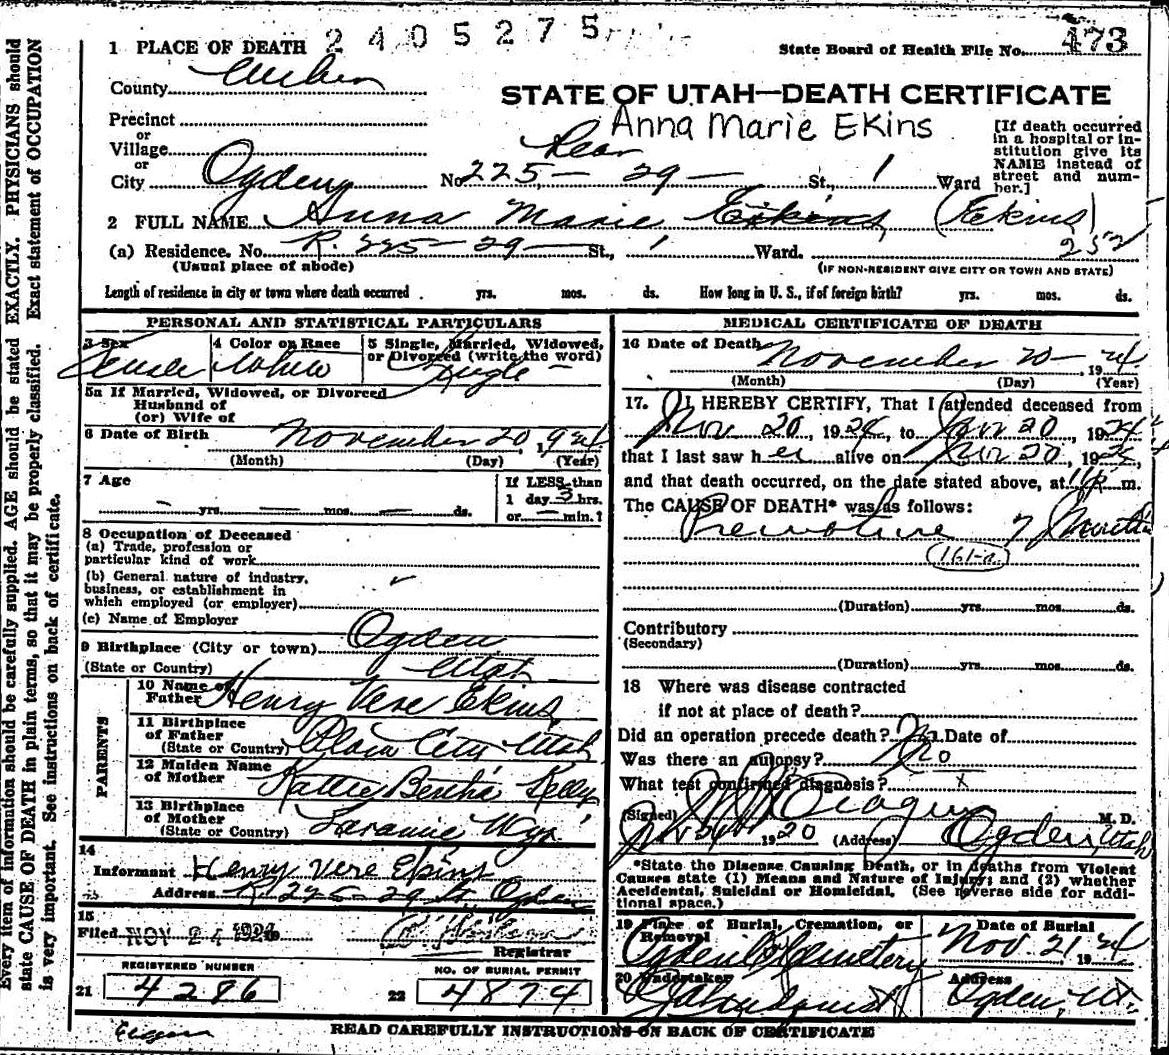 2405275
1 PLACE OF DEATH
State Board of Health File No. 473
County Weber
STATE OF UTAH—DEATH CERTIFICATE
Anna Marie Ekins
Precinct
or
Village
or
City Ogden No. Rear 225— 29— St., 1 Ward
[If death occurred
in a hospital or in-
stitution give its
NAME instead of
street and num-
ber.]
2 FULL NAME Anna Marie Eskins (Ekins)
(a) Residence. No. R. 225— 29— St., 1 Ward. 252
(Usual place of abode)
(IF NON-RESIDENT GIVE CITY OR TOWN AND STATE)
Length of residence in city or town where death occurred yrs. mos. ds. How long in U. S., if of foreign birth? yrs. mos. ds.
PERSONAL AND STATISTICAL PARTICULARS
3 Sex
Female
4 Color or Race
White
5 Single, Married, Widowed,
or Divorced (write the word)
Single —
5a If Married, Widowed, or Divorced
Husband of
(or) Wife of
6 Date of Birth November 20, 1924
(Month) (Day) (Year)
7 Age
— yrs. — mos. — ds.
If LESS than
1 day 3 hrs.
or — min.?
8 Occupation of Deceased
(a) Trade, profession or
particular kind of work
(b) General nature of industry,
business, or establishment in
which employed (or employer)
(c) Name of Employer
9 Birthplace (City or town) Ogden
(State or Country) Utah
PARENTS
10 Name of
Father Henry Vere Ekins
11 Birthplace
of Father
(State or Country) Plain City Utah
12 Maiden Name
of Mother Kattie Bertha Kelly
13 Birthplace
of Mother
(State or Country) Laramie Wyo
14
Informant Henry Vere Ekins
Address R 225-29 St. Ogden
15
Filed NOV 24 1924
Registrar
REGISTERED NUMBER
21 4286
NO. OF BURIAL PERMIT
22 4874
MEDICAL CERTIFICATE OF DEATH
16 Date of Death November 20— 1924
(Month) (Day) (Year)
17. I HEREBY CERTIFY, That I attended deceased from
Nov 20, 1924, to Nov 20, 1924
that I last saw her alive on Nov 20, 1924,
and that death occurred, on the date stated above, at 11 P m.
The CAUSE OF DEATH* was as follows:
Premature 7 Months
161-a.
(Duration) yrs. mos. ds.
Contributory
(Secondary)
(Duration) yrs. mos. ds.
18 Where was disease contracted
if not at place of death?
Did an operation precede death? No Date of
Was there an autopsy? No
What test confirmed diagnosis? x
(Signed) M. D.
1920 (Address) Ogden, Utah
*State the Disease Causing Death, or in deaths from Violent
Causes state (1) Means and Nature of Injury; and (2) whether
Accidental, Suicidal or Homicidal. (See reverse side for addi-
tional space.)
19 Place of Burial, Cremation, or
Removal
Ogden Cemetery
Date of Burial
Nov. 21 1924
20 Undertaker
Address
Ogden, Ut.
READ CAREFULLY INSTRUCTIONS ON BACK OF CERTIFICATE
Every item of information should be carefully supplied. AGE should be stated EXACTLY. PHYSICIANS should
state CAUSE OF DEATH in plain terms, so that it may be properly classified. Exact statement of OCCUPATION
is very important. See instructions on back of certificate.